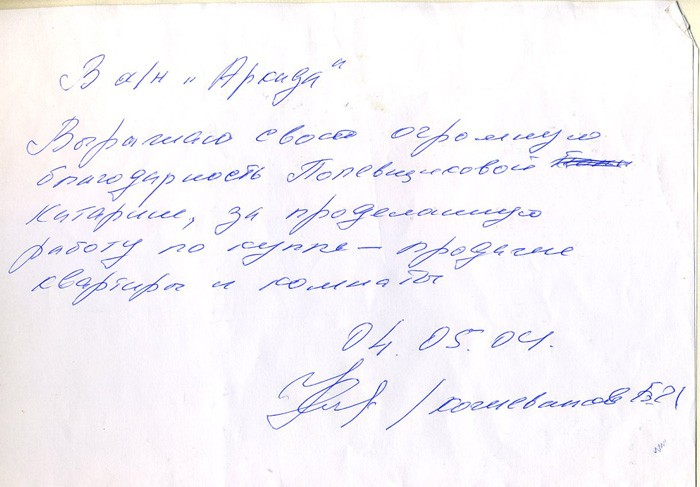 В а/н "Аркада"
Выражаю свою огромную
благодарность Полевщиковой
Катарине, за проделанную
работу по купле-продаже
квартиры и комнаты
04.05.04.